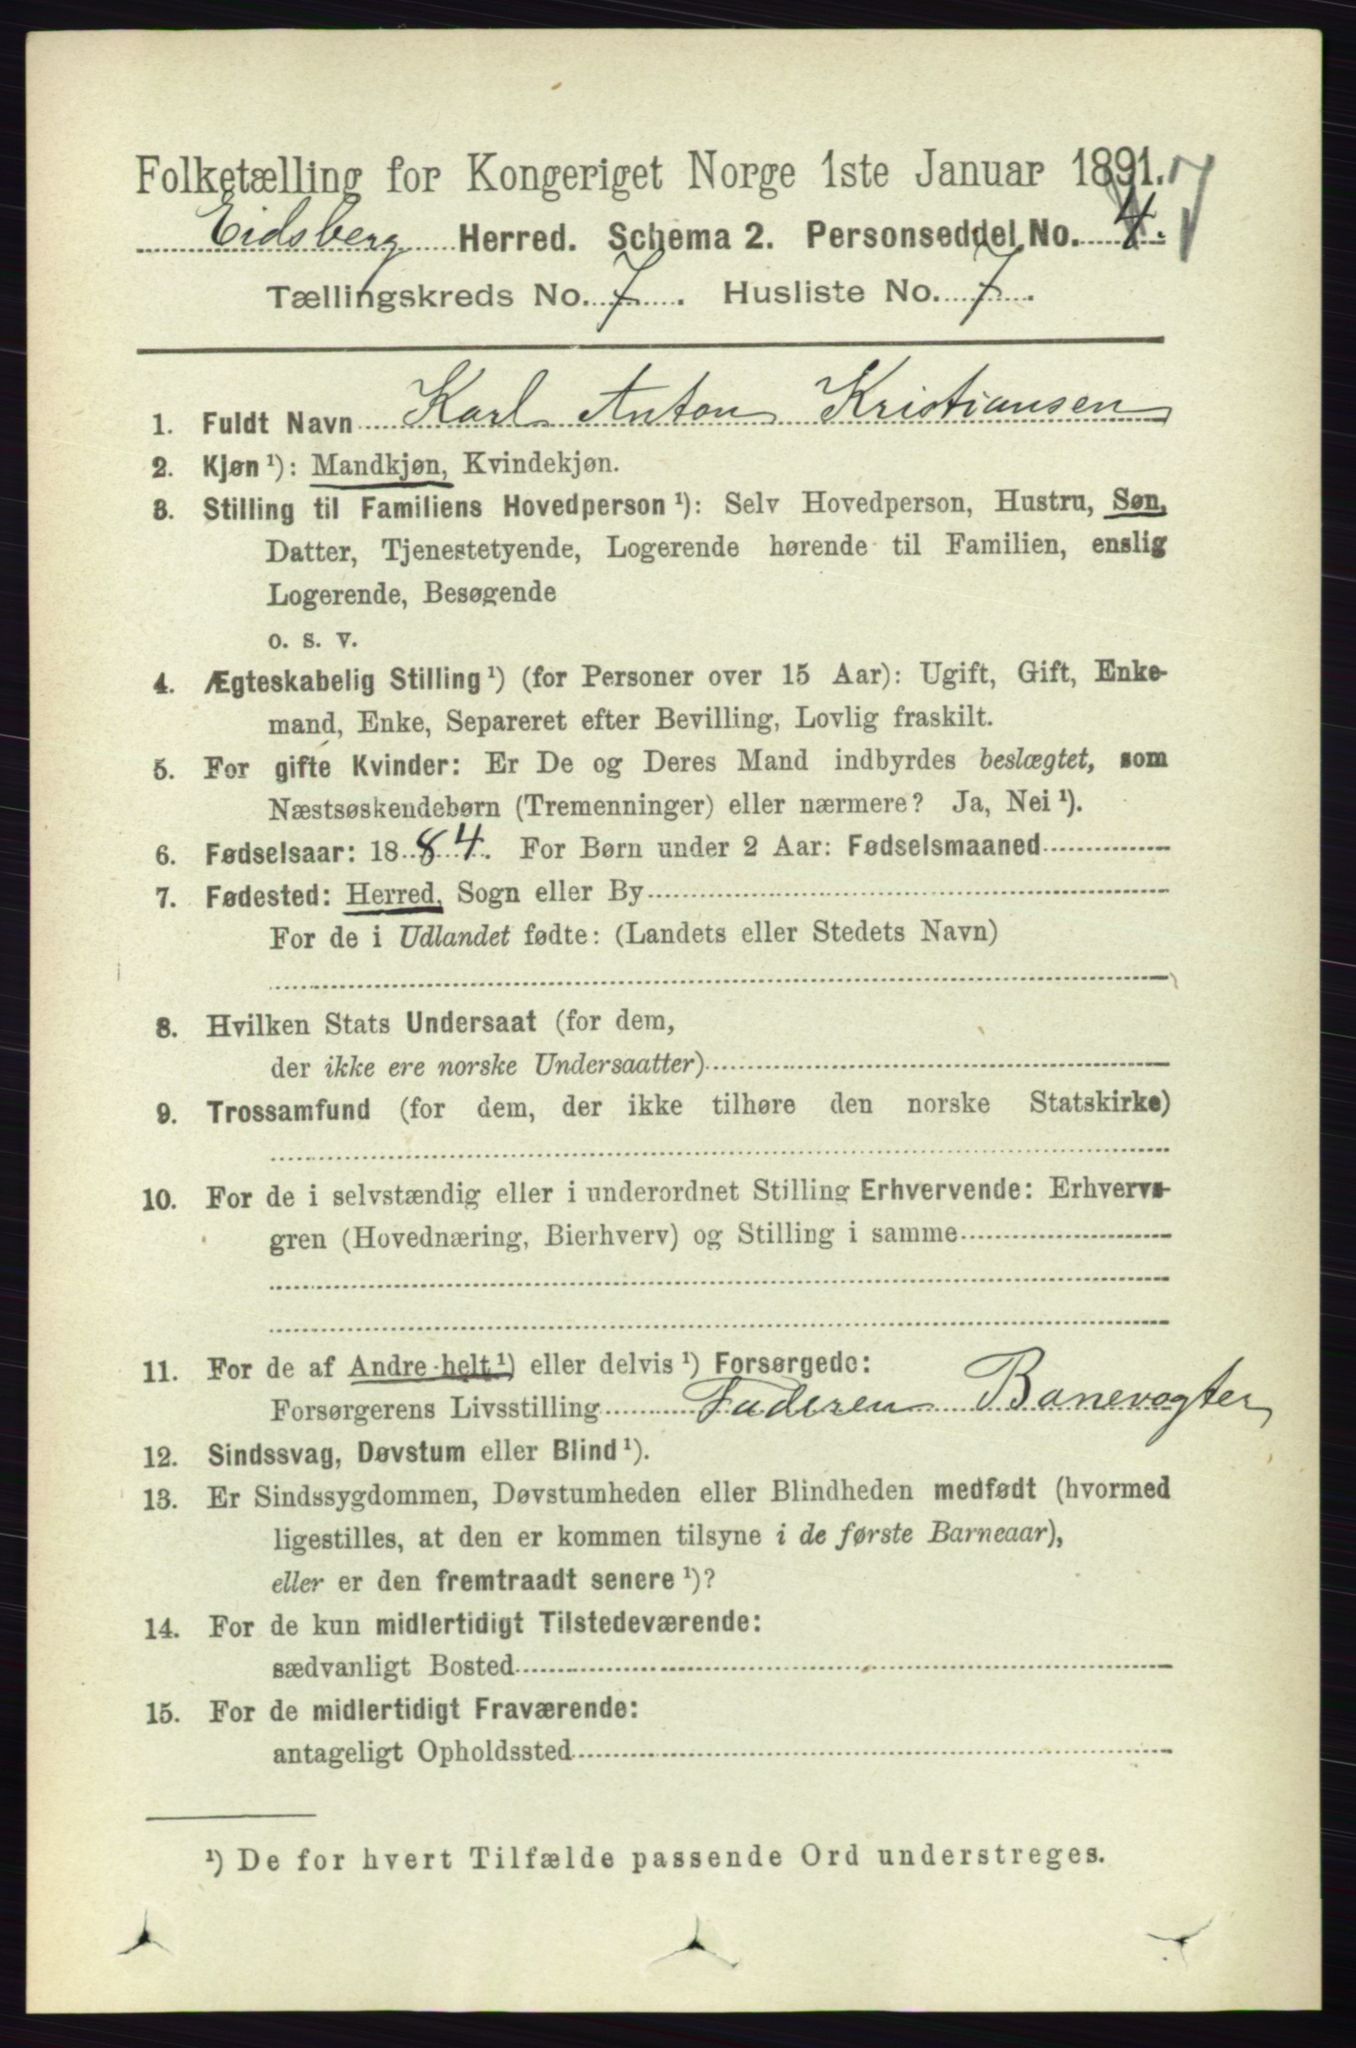 Folketælling for Kongeriget Norge 1ste Januar 1891.
Eidsberg Herred. Schema 2. Personseddel No. 4. 7
Tællingskreds No. 7. Husliste No. 7.
1. Fuldt Navn Karl Anton Kristiansen
2. Kjøn ¹): Mandkjøn, Kvindekjøn.
3. Stilling til Familiens Hovedperson ¹): Selv Hovedperson, Hustru, Søn,
Datter, Tjenestetyende, Logerende hørende til Familien, enslig
Logerende, Besøgende
o. s. v.
4. Ægteskabelig Stilling ¹) (for Personer over 15 Aar): Ugift, Gift, Enke-
mand, Enke, Separeret efter Bevilling, Lovlig fraskilt.
5. For gifte Kvinder: Er De og Deres Mand indbyrdes beslægtet, som
Næstsøskendebørn (Tremenninger) eller nærmere? Ja, Nei ¹).
6. Fødselsaar: 1884. For Børn under 2 Aar: Fødselsmaaned
7. Fødested: Herred, Sogn eller By
For de i Udlandet fødte: (Landets eller Stedets Navn)
8. Hvilken Stats Undersaat (for dem,
der ikke ere norske Undersaatter)
9. Trossamfund (for dem, der ikke tilhøre den norske Statskirke)
10. For de i selvstændig eller i underordnet Stilling Erhvervende: Erhvervs-
gren (Hovednæring, Bierhverv) og Stilling i samme
11. For de af Andre helt ¹) eller delvis ¹) Forsørgede:
Forsørgerens Livsstilling Faderen Banevogter
12. Sindssvag, Døvstum eller Blind ¹).
13. Er Sindssygdommen, Døvstumheden eller Blindheden medfødt (hvormed
ligestilles, at den er kommen tilsyne i de første Barneaar),
eller er den fremtraadt senere ¹)?
14. For de kun midlertidigt Tilstedeværende:
sædvanligt Bosted
15. For de midlertidigt Fraværende:
antageligt Opholdssted
¹) De for hvert Tilfælde passende Ord understreges.